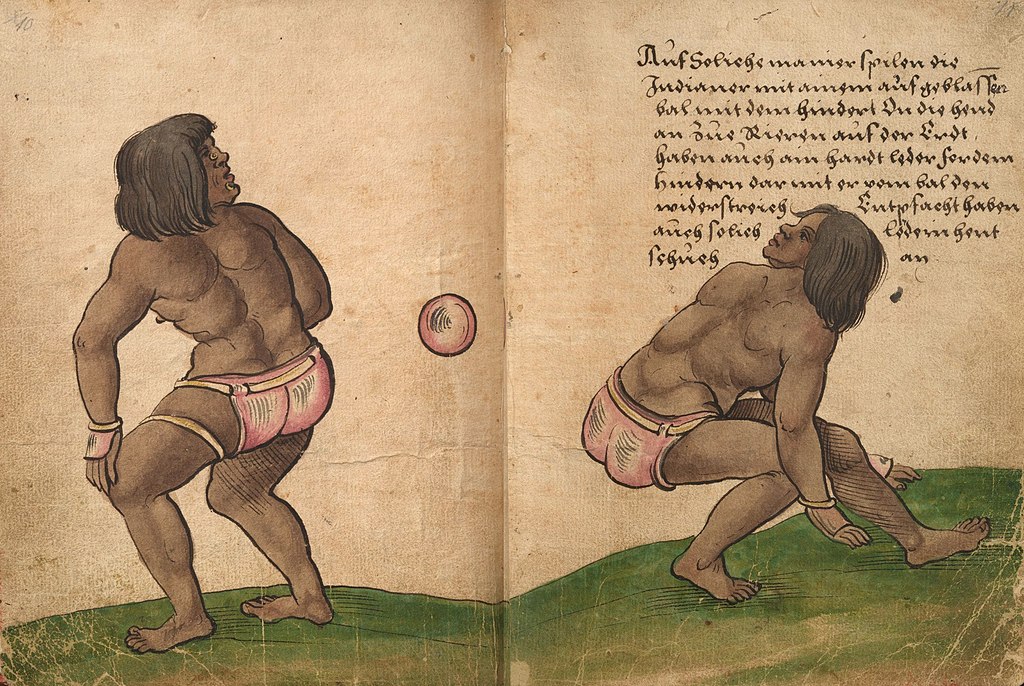 10
Auf Soliche manier spilen die
Indianer mit ainem auf geblassen
bal mit dem hindert On die hend
an Zue Rieren auf der Erdt.
haben auch ain hardt leder for dem
hindern dar mit er vom bal den
widerstreich Entpfacht haben
auch solich ledern hent
schuch an